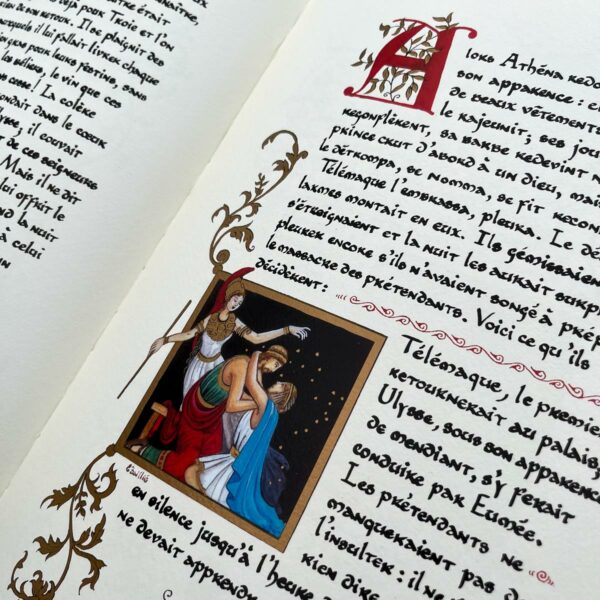 naître.
était
déjà pour Troie et l'on
de son retour. Il se plaignit des
auxquels il lui fallait livrer chaque
pas pour leurs festins, sans
les béliers, le vin que ces
cesse ! La colère
dans le cœur
il couvait
de ces seigneurs
Mais il ne dit
lui offrit le
la nuit
à celui
un
Alors Athéna redo
son apparence :
de beaux vêtements
le rajeunit ; ses jou
regonflèrent, sa barbe redevint n
prince crut d'abord à un dieu, mais
le détrompa, se nomma, se fit recon
Télémaque l'embrassa, pleura. Le dé
larmes montait en eux. Ils gémissaien
s'étreignaient et la nuit les aurait surpri
pleurer encore s'ils n'avaient songé à prép
le massacre des prétendants. Voici ce qu'ils
décidèrent :
Télémaque, le premier
retournerait au palais,
Ulysse, sous son apparence
de mendiant, s'y ferait
conduire par Eumée.
Les prétendants ne
manqueraient pas de
l'insulter : il ne
rien dire
en silence jusqu'à l'heure
ne devait apprend